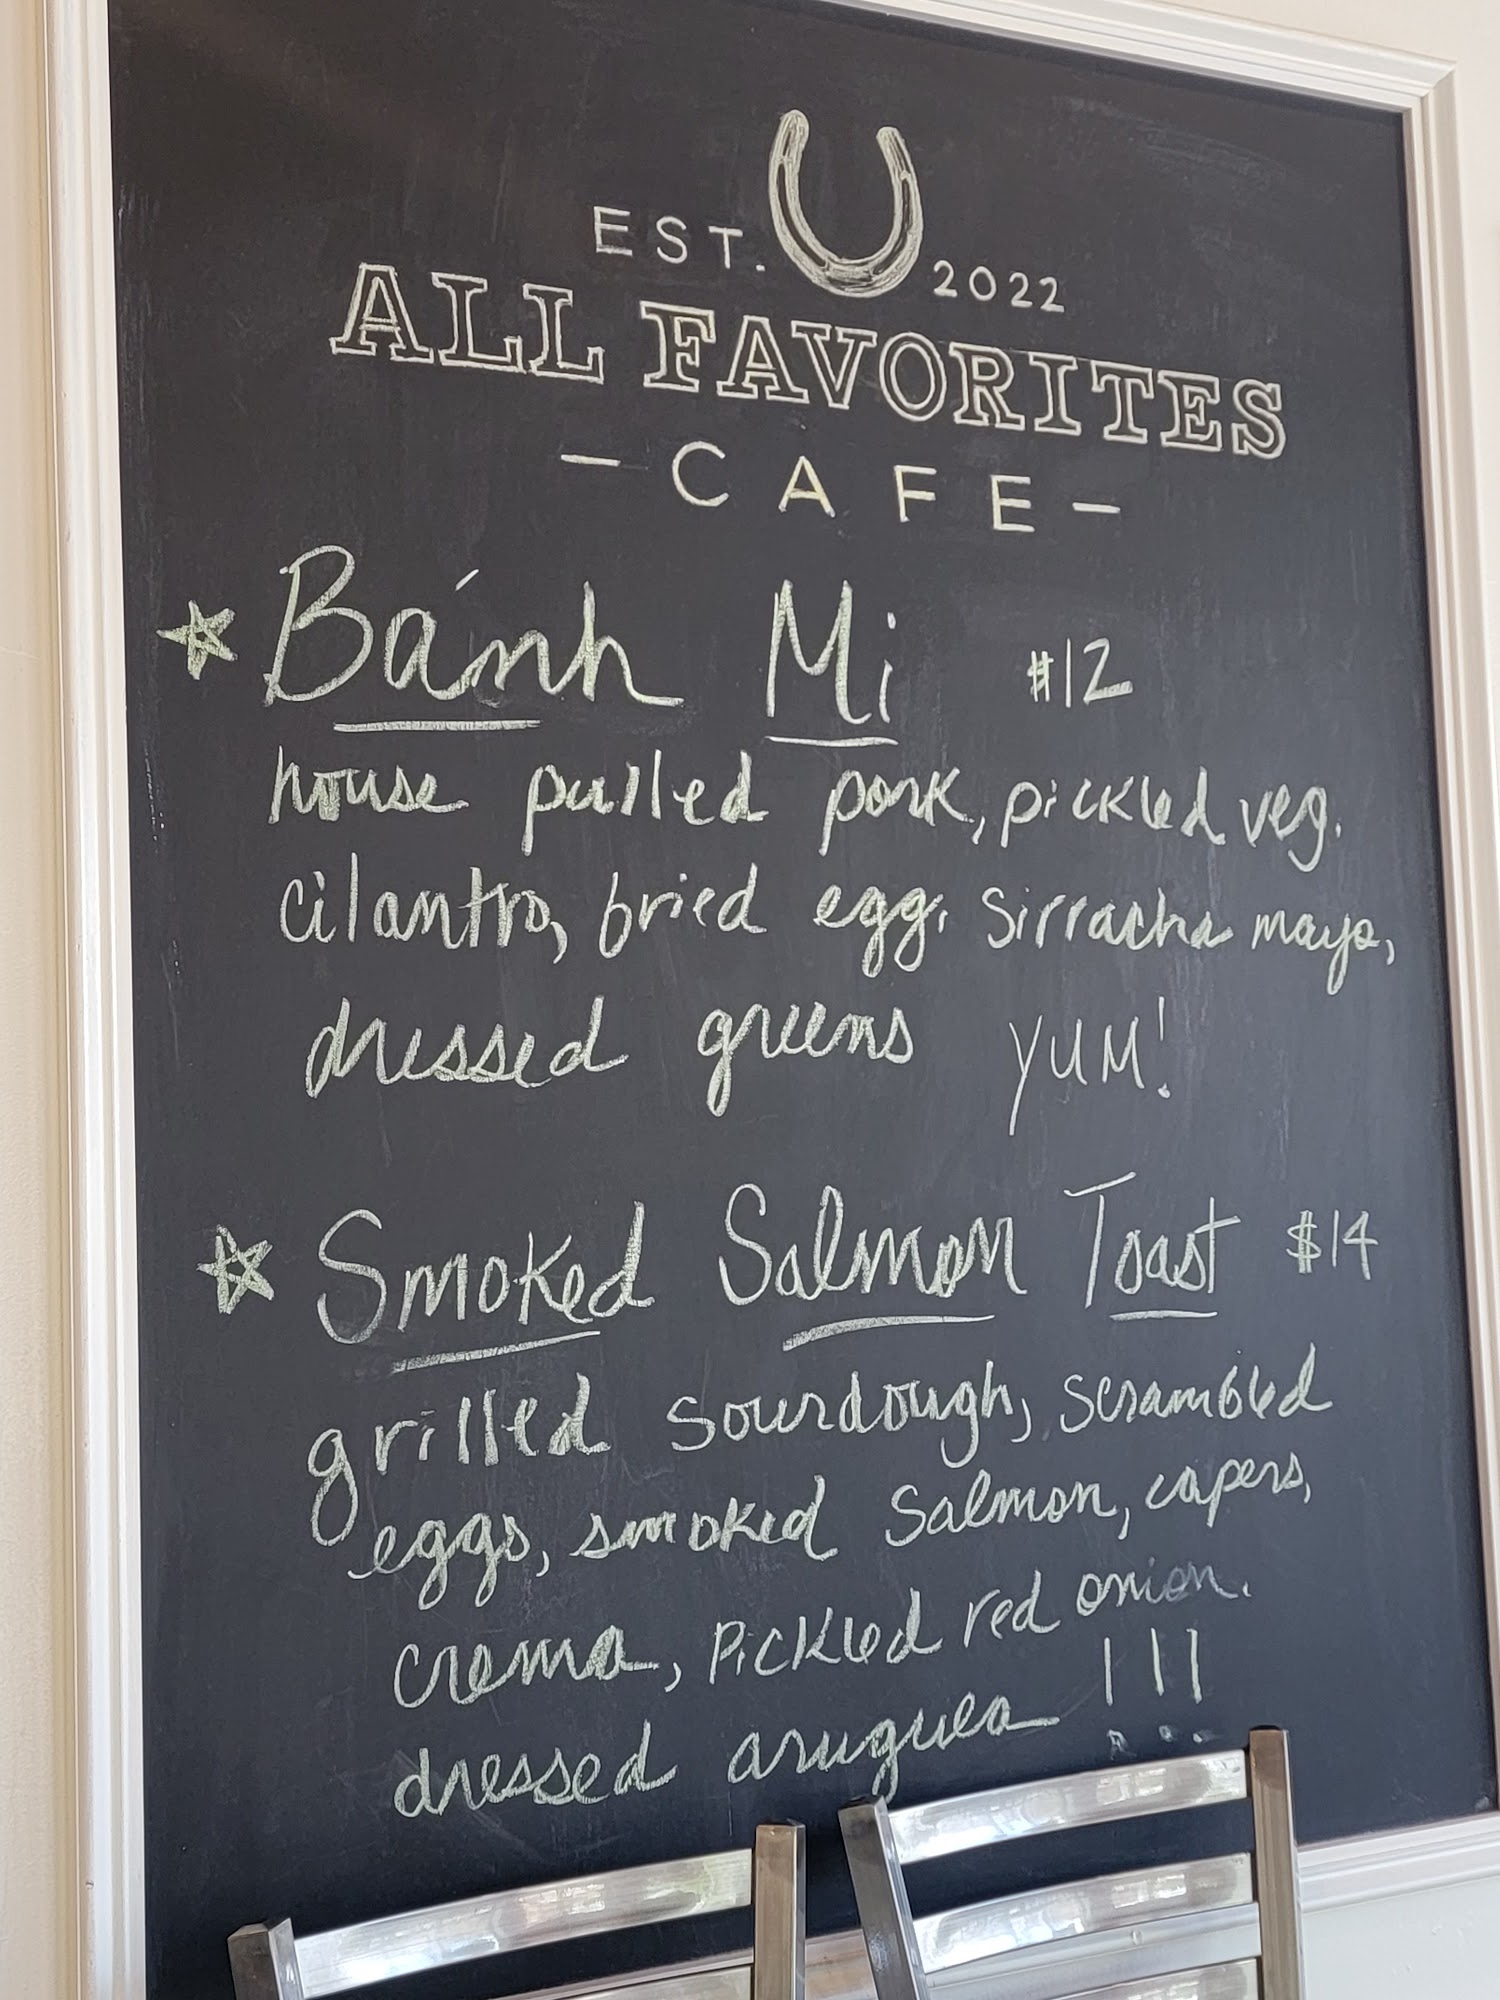 EST. 2022
ALL FAVORITES
- CAFE -
Bánh Mi $12
house pulled pork, pickled veg.
cilantro, fried egg, Sirracha mayo,
dressed greens YUM!
Smoked Salmon Toast $14
grilled sourdough, scrambled
eggs, smoked Salmon, capers,
crema, pickled red onion.
dressed arugula !!!